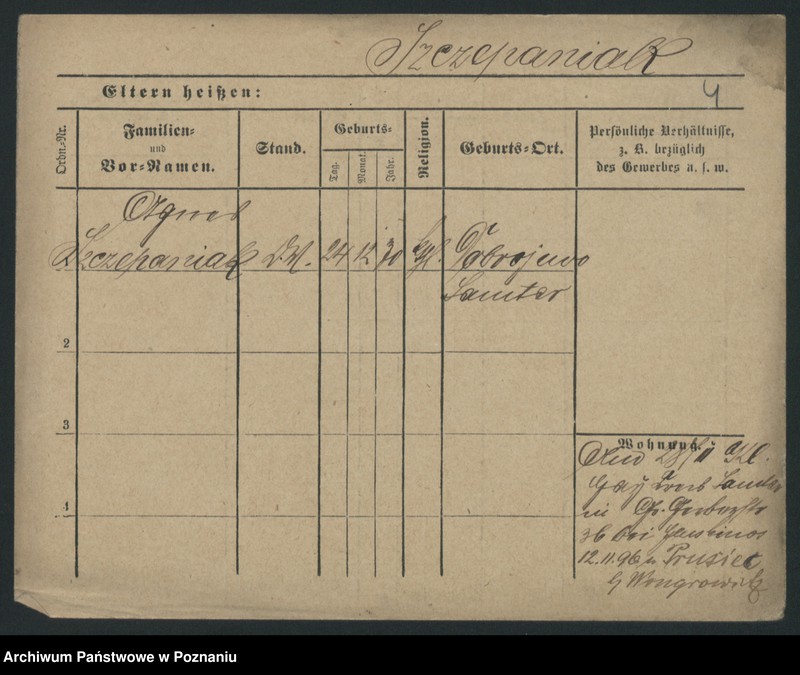 Szczepaniak
Eltern heißen:
4
Ordn.-Nr.
Familien-
und
Vor-Namen.
Stand.
Geburts-
Tag.
Monat.
Jahr.
Religion.
Geburts-Ort.
Persönliche Verhältnisse,
z. B. bezüglich
des Gewerbes u. s. w.
Agnes
Szczepaniak DM. 24 12 70 Dobrojewo
Samter
2
3
4
Wohnung.
28/11
Gay Samter
in Gr. Gerberstr
36 bei
12.11.96 n Prusiec
Wongrowitz
Archiwum Państwowe w Poznaniu